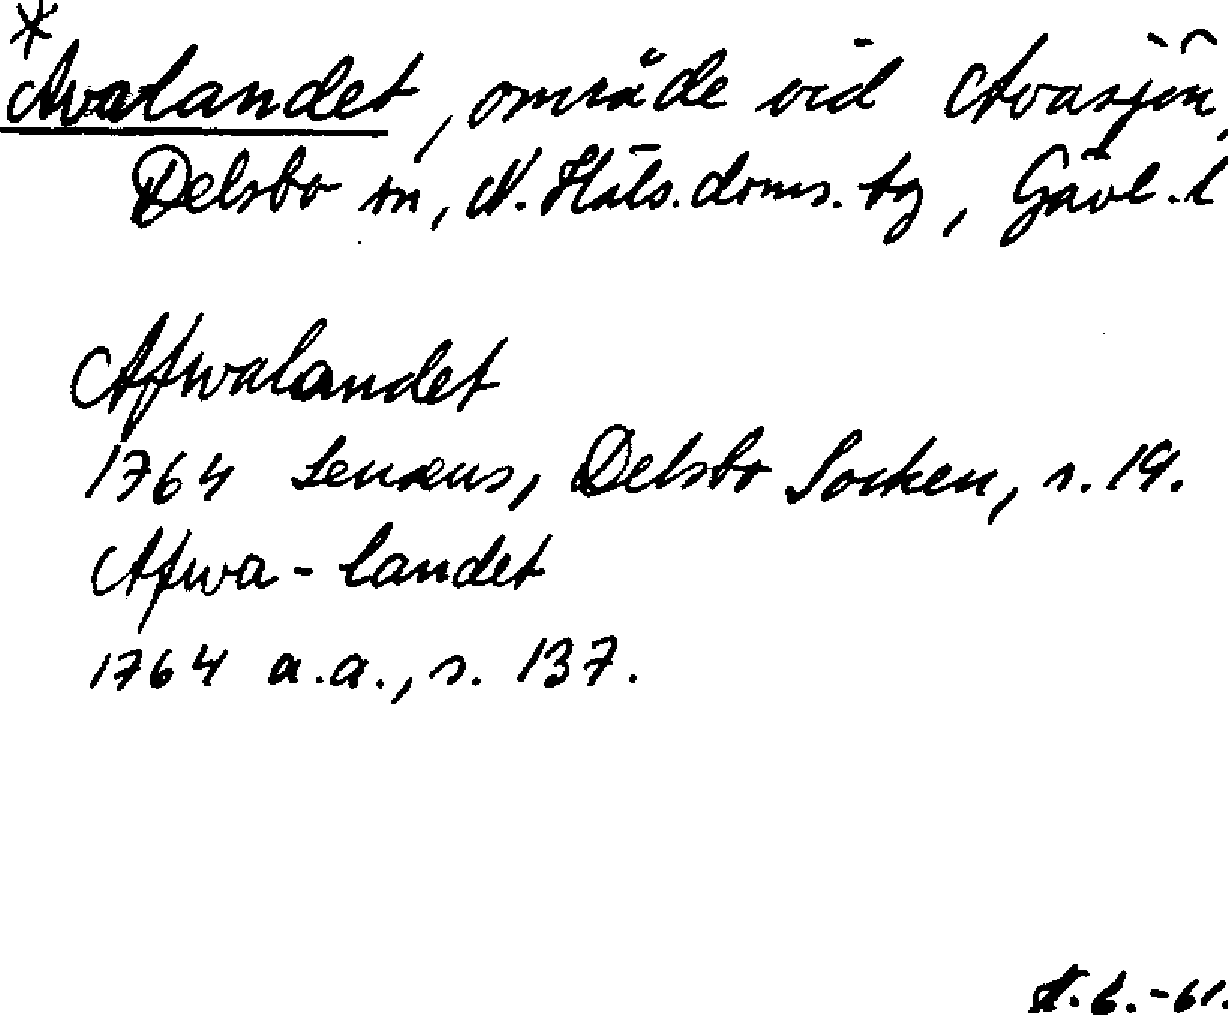 *
Avalandet, område vid Avasjön,
Delsbo sn, N. Häls. doms. tg, Gävl. l
Afwalandet
1764 Lenæus, Delsbo Socken, s. 19.
Afwa-landet
1764 a.a., s. 137.
-61.